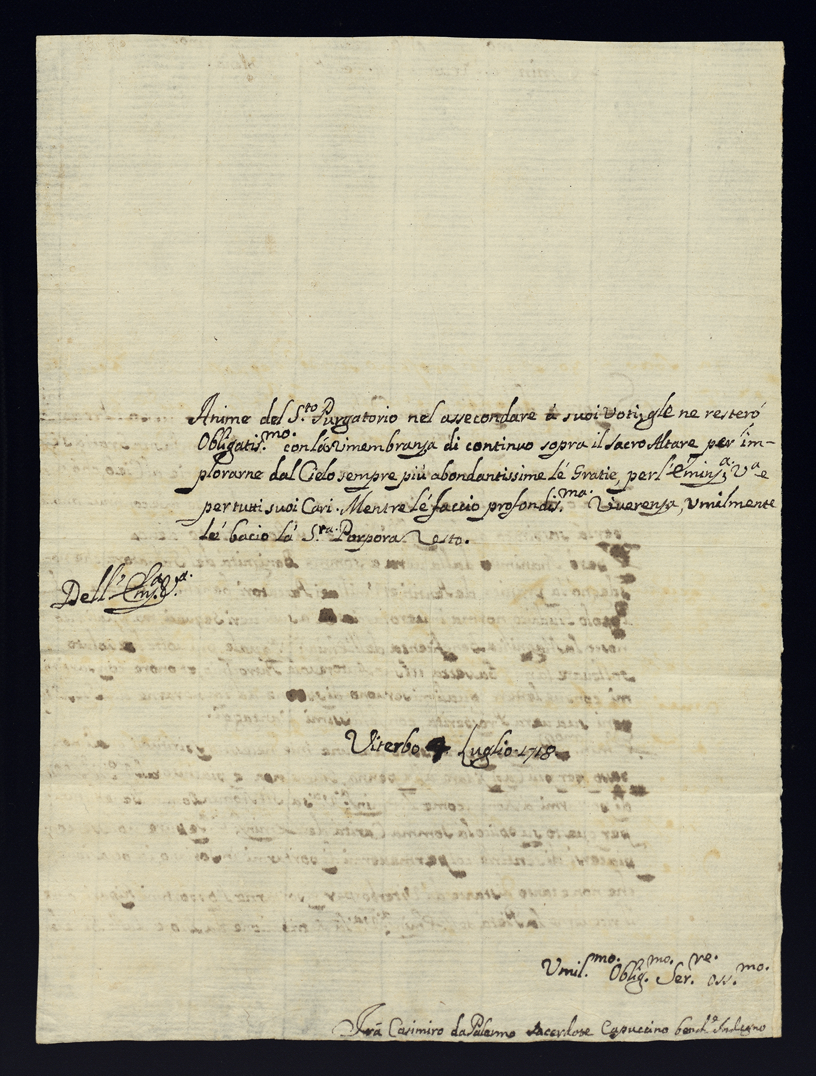 Anime del S.to Purgatorio nel assecondare á suoi Voti, gle ne resteró
Obligatis.mo con lá rimembranza di continuo sopra il sacro Altare per im-
plorarne dal Cielo sempre piú abondantissime lé Gratie, per l'Emin.za V.a e
per tutti suoi Cari. Mentre lé faccio profondis.ma Riverenza, Umilmente
lé bacio lá S.ra Porpora. Resto.
Dell' Em.a V.a
Viterbo 4 Luglio 1718
Umil.mo Oblig.mo Ser.re oss.mo
Frá Casimiro da Palermo Sacerdote Capuccino bench.e Indegno